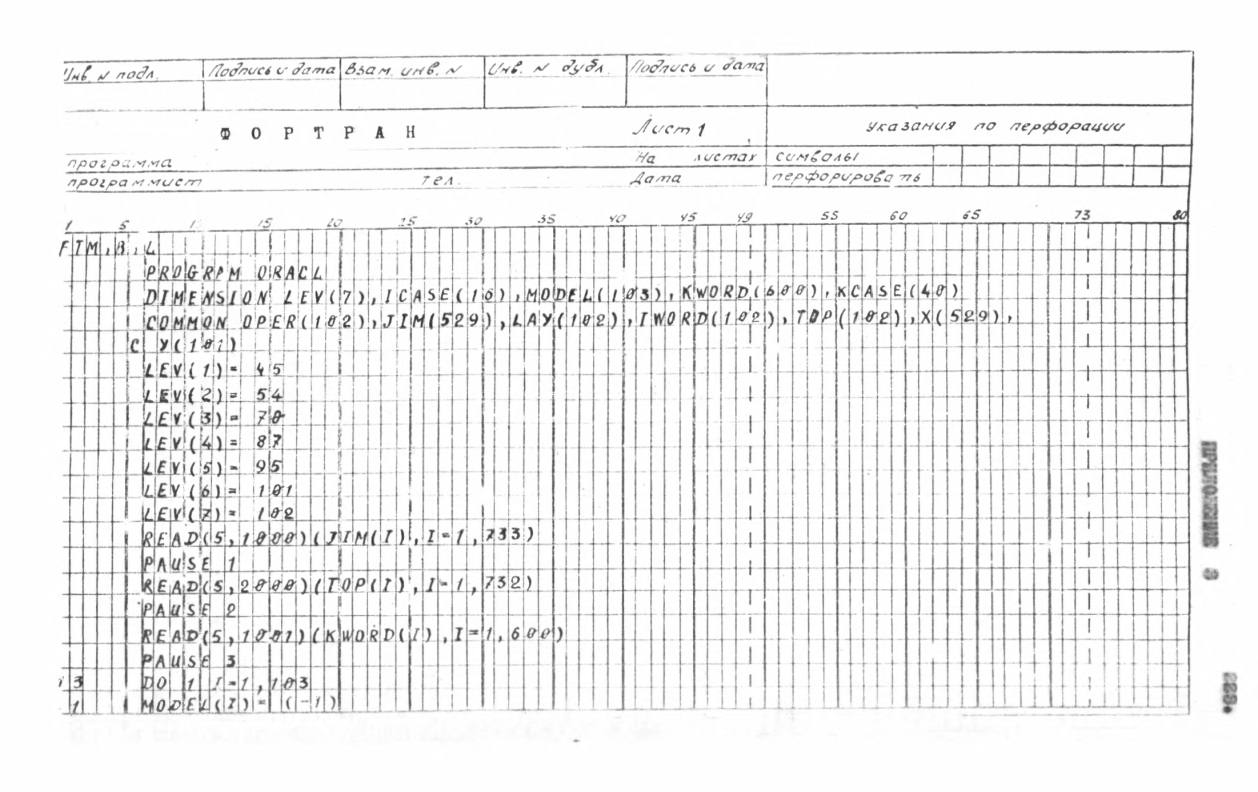 Инв. N подл. Подпись и дата Взам. инв. N Инв. N дубл. Подпись и дата
ФОРТРАН Лист 1 Указания по перфорации
программа На листах символы
программист тел. Дата перфорировать
1 5 1 15 20 25 30 35 40 45 49 55 60 65 73 80
FTM,B,L
PROGRAM ORACL
DIMENSION LEV(7),ICASE(10),MODEL(103),KWORD(600),KCASE(40)
COMMON OPER(102),JIM(529),LAY(102),IWORD(102),TOP(102),X(529),
C Y(101)
LEV(1)= 45
LEV(2)= 54
LEV(3)= 70
LEV(4)= 87
LEV(5)= 95
LEV(6)= 101
LEV(7)= 102
READ(5,1000)(JIM(I),I=1,733)
PAUSE 1
READ(5,2000)(TOP(I),I=1,732)
PAUSE 2
READ(5,1001)(KWORD(I),I=1,600)
PAUSE 3
13 DO 1 I=1,103
1 MODEL(I)=(-1)
ПРИЛОЖЕНИЕ 3